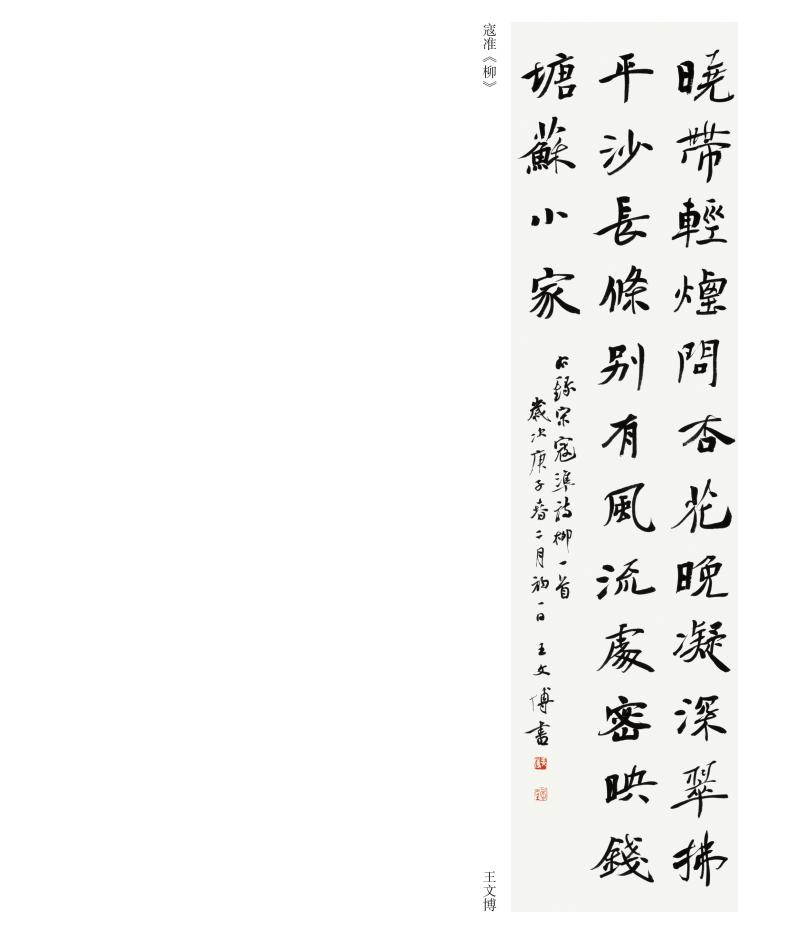 曉帶輕煙間杏花晚凝深翠拂
平沙長條别有風流處密映錢
塘蘇小家
右錄宋寇準詩柳一首
歲次庚子春二月初一日王文博書
寇准《柳》
王文博